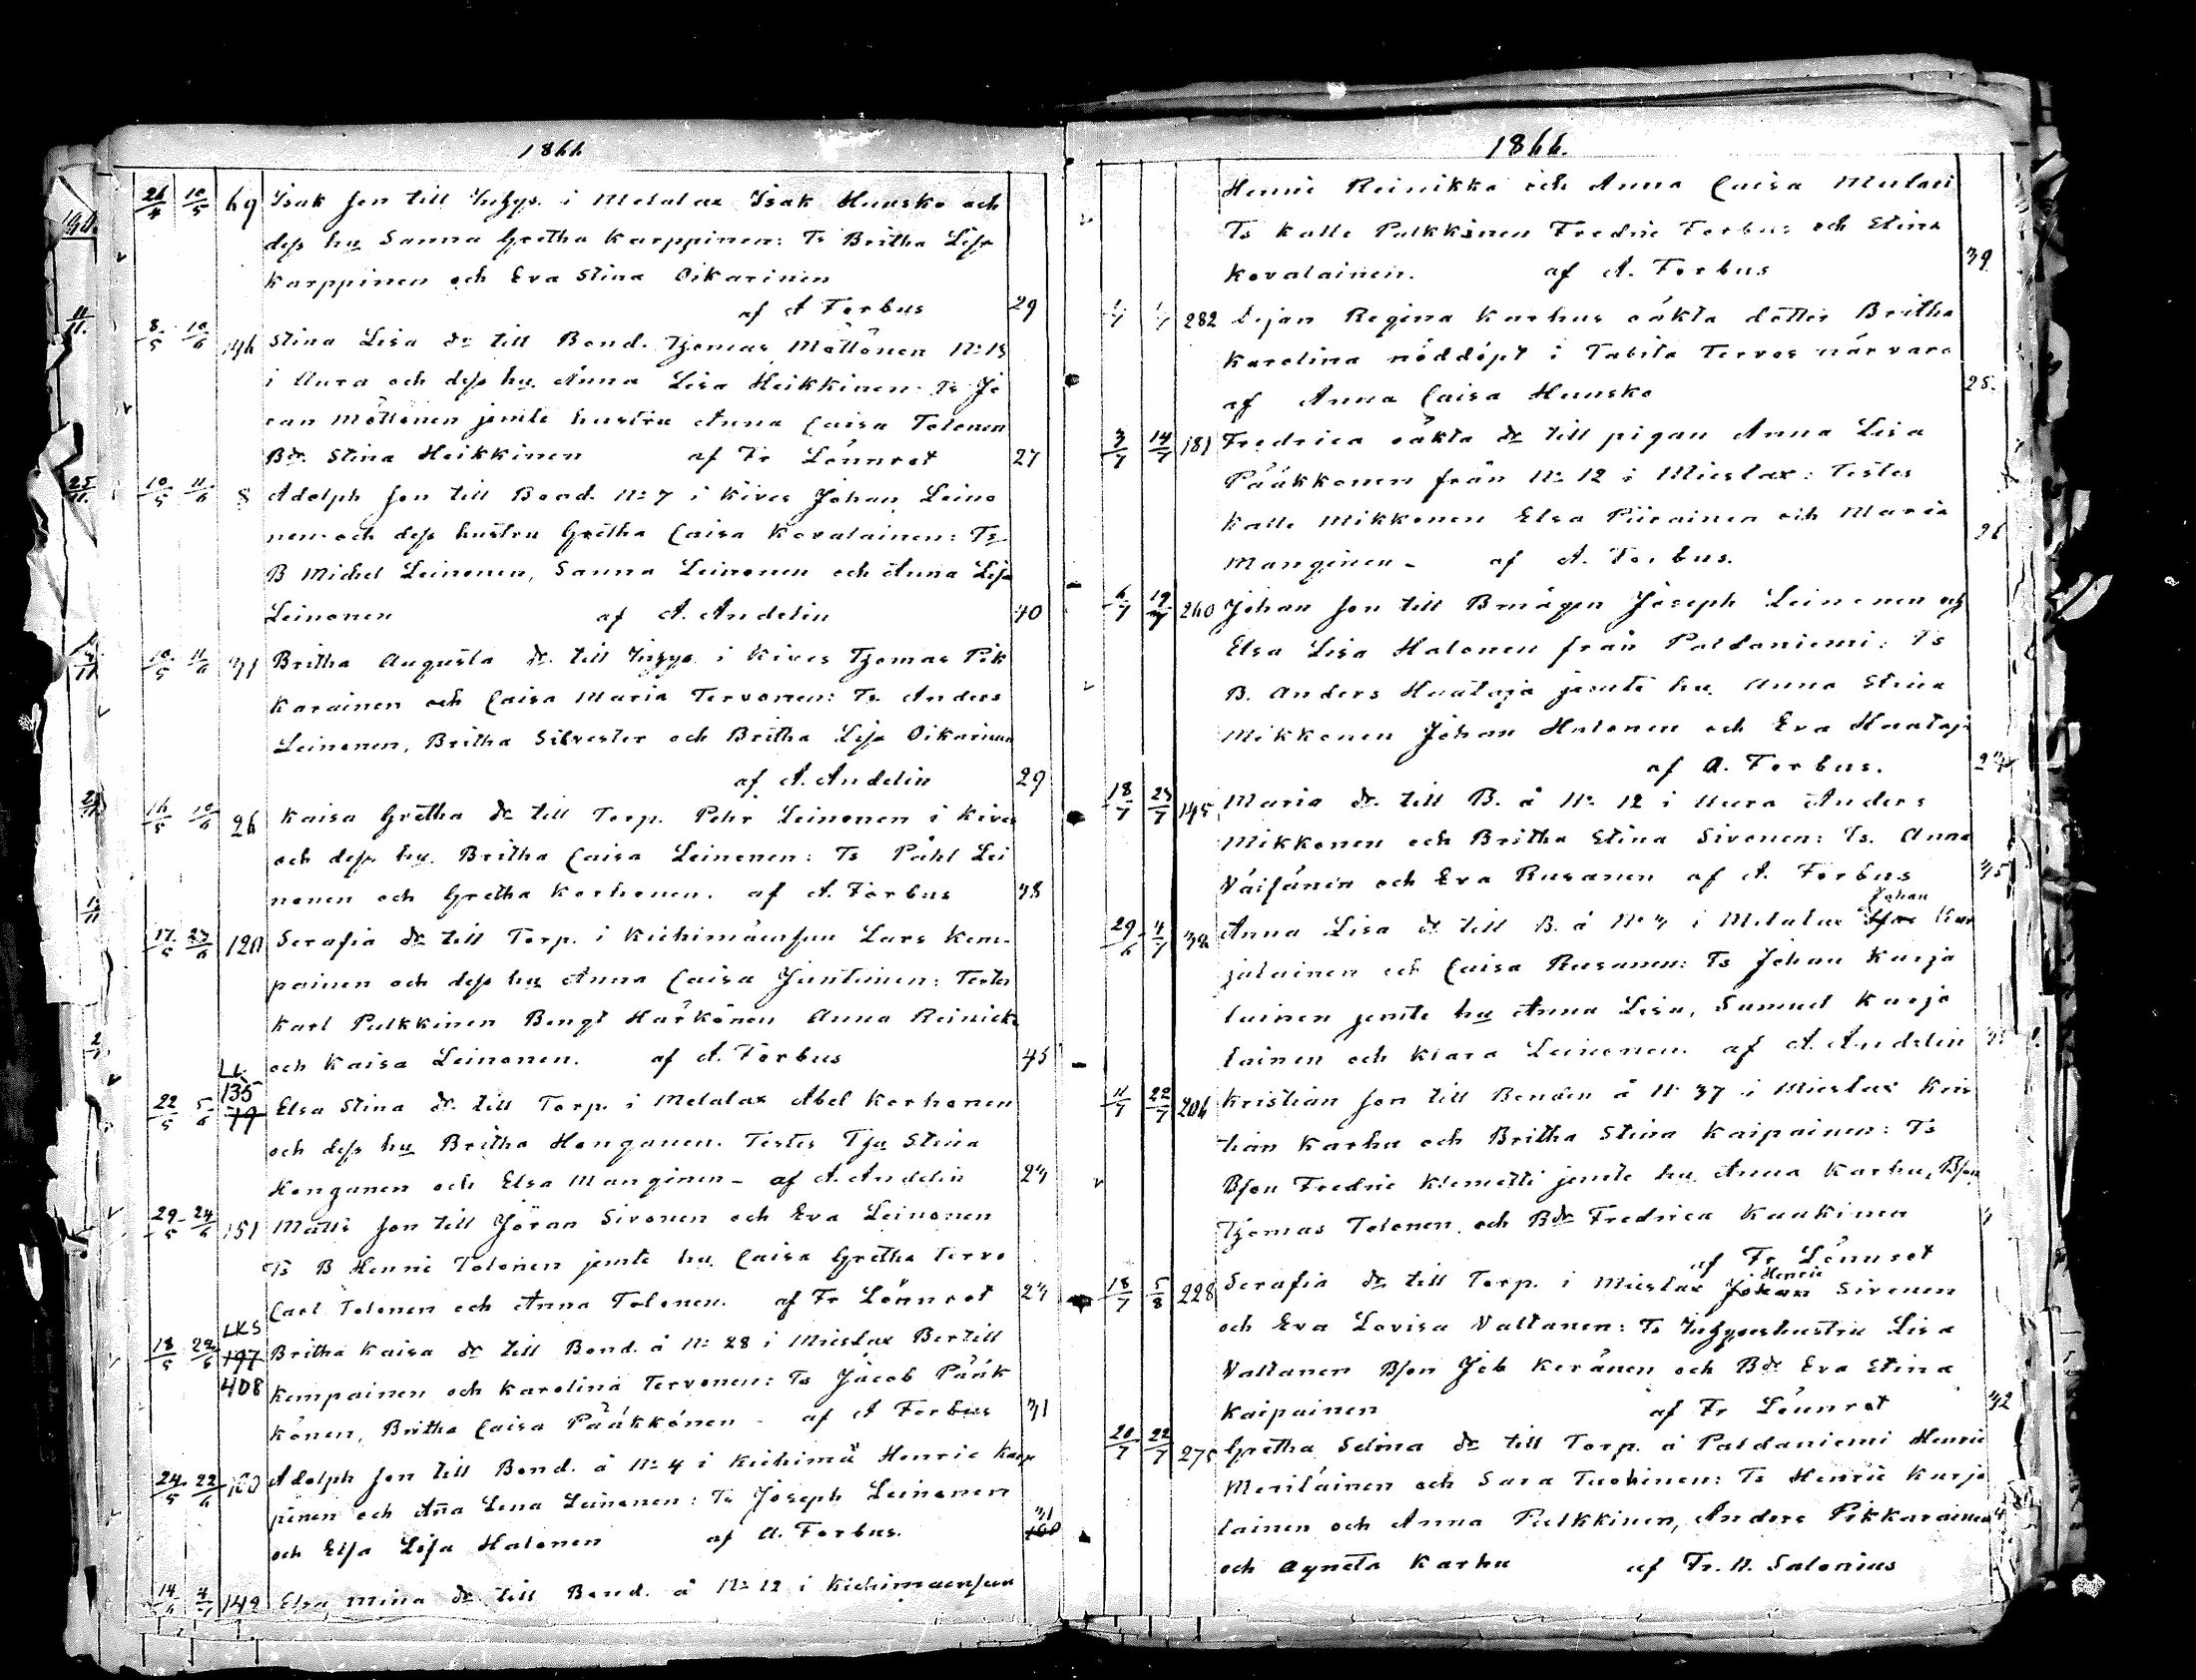 1866
26/4 10/5 69 Isak son till Inhys. i Melalax Isak Huusko och
dess hu Sanna Gretha Karppinen: Ts Britha Lisa
Karppinen och Eva Stina Oikarinen
af A Forbus 29
8/5 10/6 196 Stina Lisa dr till Bond. Thomas Möttönen No 13
i Aura och dess hu. Anna Lisa Heikkinen: Ts Jö
ran Möttönen jemte hustru Anna Caisa Tolonen
Bdr. Stina Heikkinen af Fr Lönnrot 27
10/5 11/6 8 Adolph son till Bond. No 7 i Kives Johan Leino
nen och dess hustru Gretha Caisa Kovalainen: Ts
B Michel Leinonen, Sanna Leinonen och Anna Lisa
Leinonen af A. Andelin 40
10/5 11/6 31 Britha Augusta dr. till Inhys i Kives Thomas Pik
karainen och Caisa Maria Tervonen: Ts Anders
Leinonen, Britha Silvester och Britha Lisa Oikarinen
af A. Andelin 29
16/5 10/6 26 Kaisa Gretha dr till Torp. Pehr Leinonen i Kives
och dess hu. Britha Caisa Leinonen: Ts Påhl Lei
nonen och Gretha Korhonen. af A. Forbus 38
17/5 23/6 120 Serafia dr till Torp. i Kiehimäensuu Lars Kem-
painen och dess hu Anna Caisa Juntunen: Testes
Karl Pulkkinen Bengt Härkönen Anna Reinicka
och Kaisa Leinonen. af A. Forbus 45
LL 135
22/5 5/6 79 Elsa Stina dr. till Torp. i Melalax Abel Korhonen
och dess hu Britha Honganen. Testes Tju Stina
Honganen och Elsa Manginen - af A. Andelin 24
29/5 24/6 151 Matts son till Jöran Sivonen och Eva Leinonen
Ts B Henric Tolonen jemte hu Caisa Gretha Tervo
Carl Tolonen och Anna Tolonen. af Fr Lönnrot 24
LKS
18/5 22/6 197 Britha Kaisa dr till Bond. å No 28 i Mieslax Bertill
408 Kempainen och Karolina Tervonen: Ts Jacob Pääk
könen, Britha Caisa Pääkkönen - af A Forbus 31
24/5 22/6 100 Adolph son till Bond. å No 4 i Kiehimä Henric Karp
pinen och Aña Lena Leinonen: Ts Joseph Leinonen
och Elsa Lisa Halonen af A. Forbus. 31
14/6 4/7 142 Elsa Mina dr till Bond. å No 12 i Kiehimäensuu
1866.
Henric Reinikka och Anna Caisa Mulari
Ts Kalle Pulkkinen Fredric Forbus och Stina
Kovalainen. af A. Forbus 39
1/7 1/7 282 Lejan Regina Karhus oäkta dotter Britha
Karolina nöddöpt i Tabita Tervos närvaro
af Anna Caisa Huusko 25.
3/7 14/7 181 Fredrica oäkta dr till pigan Anna Lisa
Pääkkonen från No 12 i Mieslax: Testes
Kalle Mikkonen Elsa Piirainen och Maria
Manginen - af A. Forbus. 26
6/7 19/7 260 Johan son till Brukägen Joseph Leinonen och
Elsa Lisa Halonen från Paldaniemi: Ts
B. Anders Haataja jemte hu. Anna Stina
Mikkonen Johan Halonen och Eva Haataja
af A. Forbus. 24
18/7 23/7 145 Maria dr. till B. å No 12 i Aura Anders
Mikkonen och Britha Stina Sivonen: Ts. Anna
Väisänen och Eva Rusanen af A. Forbus 35
29/6 4/7 32 Anna Lisa dr till B. å No 3 i Melalax Johan Kar
jalainen och Caisa Rusanen: Ts Johan Karja
lainen jemte hu Anna Lisa, Samuel Karja
lainen och Klara Leinonen. af A. Andelin
11/7 22/7 206 Kristian son till Bonden å No 37 i Mieslax Kris
tian Karhu och Britha Stina Kaipainen: Ts
Bson Fredric Klemetti jemte hu. Anna Karhu, Bson
Thomas Tolonen, och Bdr Fredrica Kaukinen
af Fr Lönnrot
18/7 5/8 228 Serafia dr till Torp. i Mieslax Johan Henric Sivonen
och Eva Lovisa Valtanen: Ts Inhyseshustru Lisa
Valtanen Bson Job Keränen och Bdr Eva Stina
Kaipainen af Fr Lönnrot 32
20/7 22/7 275 Gretha Selina dr till Torp. å Paldaniemi Henric
Meriläinen och Sara Tuohinen: Ts Henric Karja
lainen och Anna Pulkkinen, Anders Pikkarainen
och Agneta Karhu af Fr. N. Salonius